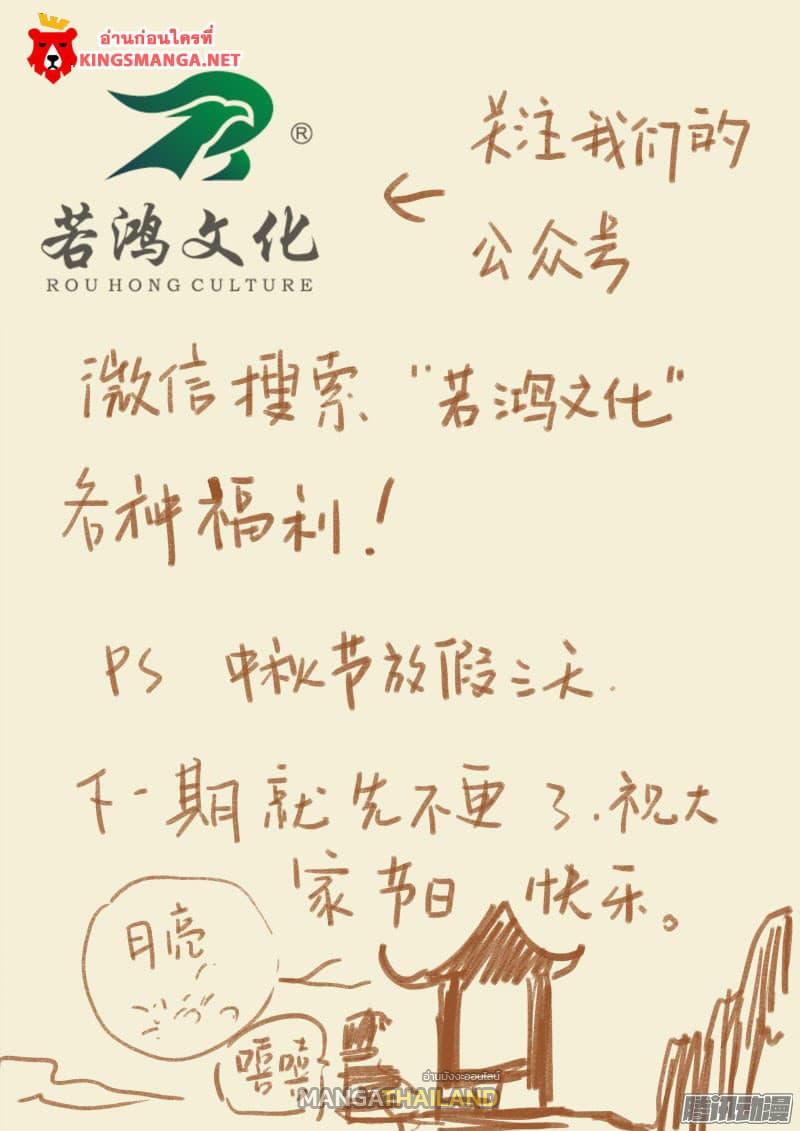 อ่านก่อนใครที่
KINGSMANGA.NET
®
若鸿文化
ROU HONG CULTURE
← 关注我们的
公众号
微信搜索“若鸿文化”
各种福利!
PS 中秋节放假三天.
下一期就先不更了.祝大
家节日快乐。
月亮
อ่านมังงะออนไลน์
MANGATHAILAND
腾讯动漫